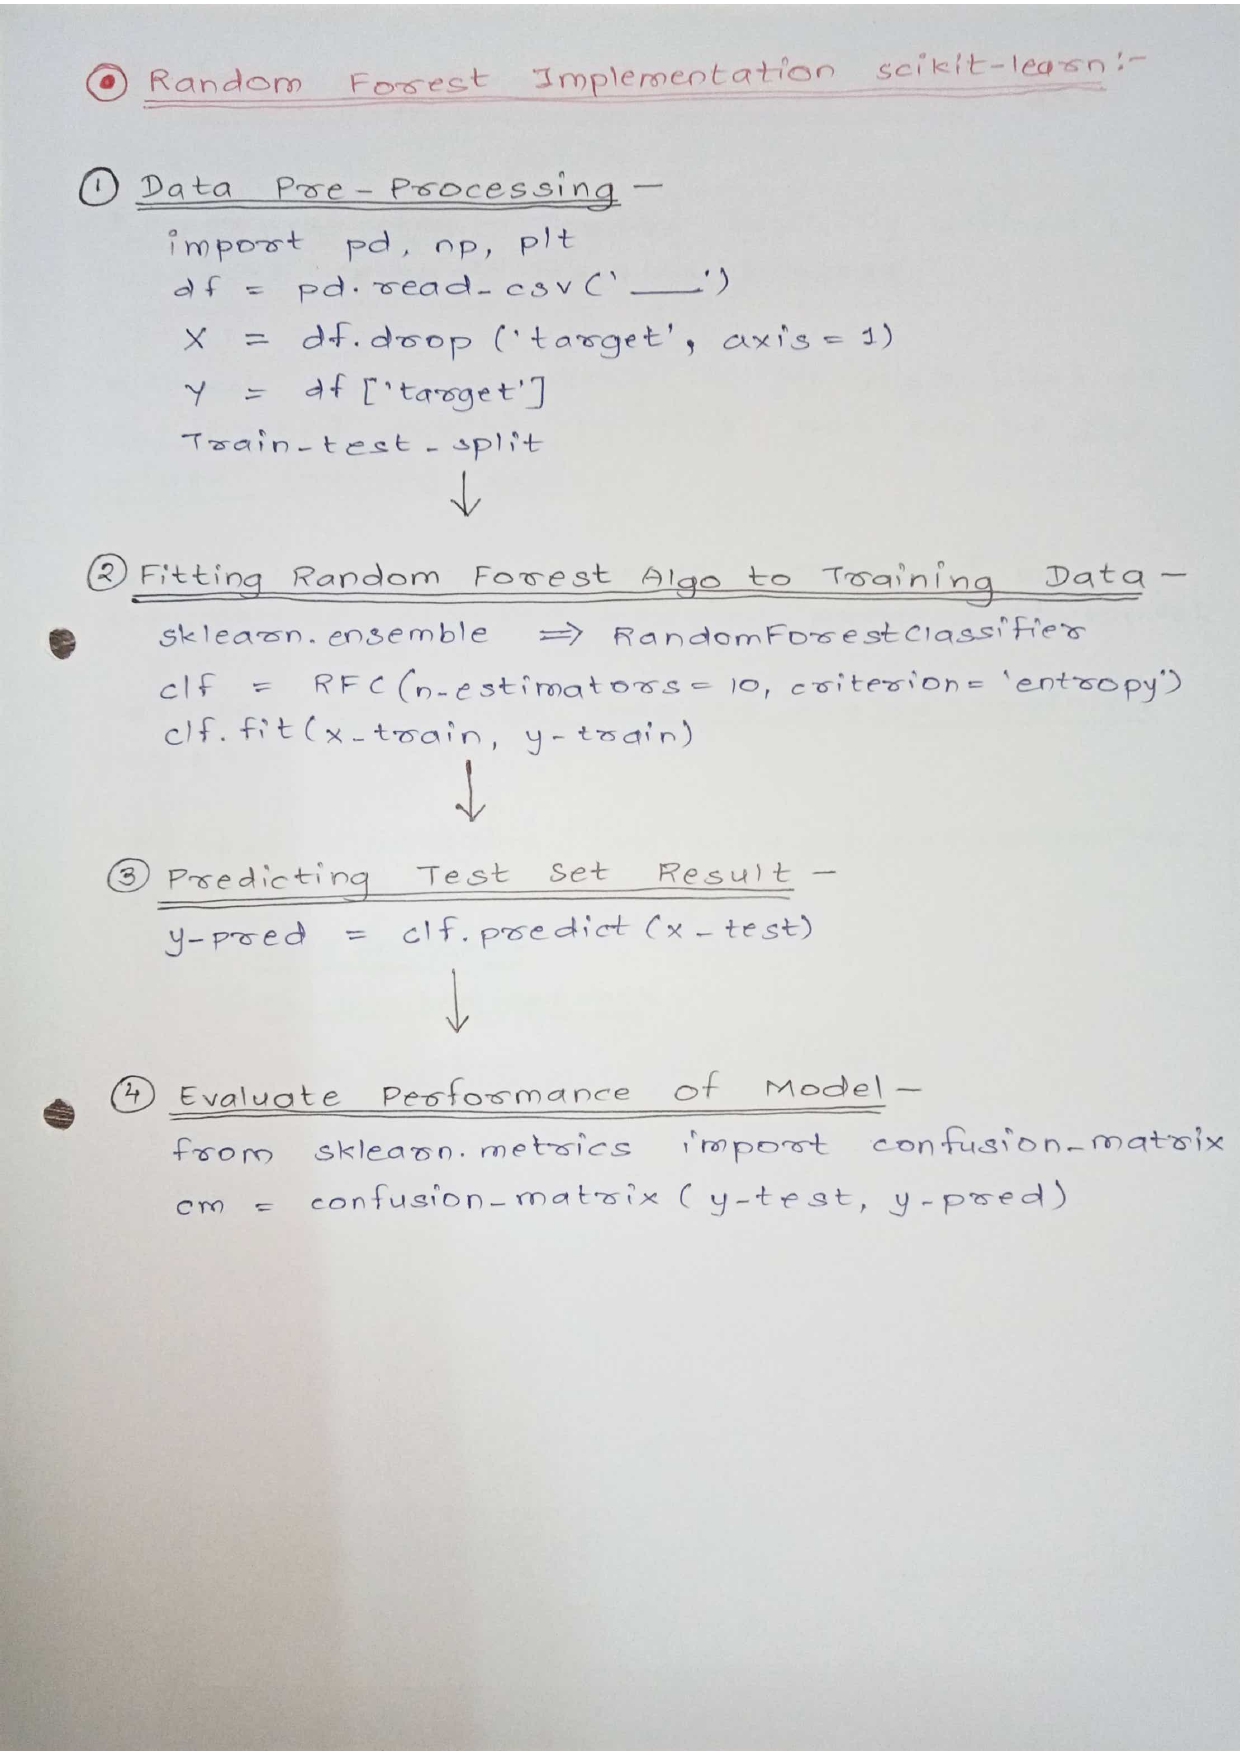 Random Forest Implementation scikit-learn :-
① Data Pre-Processing -
import pd, np, plt
df = pd.read_csv('___')
X = df.drop('target', axis = 1)
Y = df['target']
Train-test-split
↓
② Fitting Random Forest Algo to Training Data -
sklearn.ensemble ⇒ RandomForestClassifier
clf = RFC(n-estimators = 10, criterion = 'entropy')
clf.fit(x-train, y-train)
↓
③ Predicting Test Set Result -
y-pred = clf.predict(x-test)
↓
④ Evaluate Performance of Model -
from sklearn.metrics import confusion-matrix
cm = confusion-matrix(y-test, y-pred)